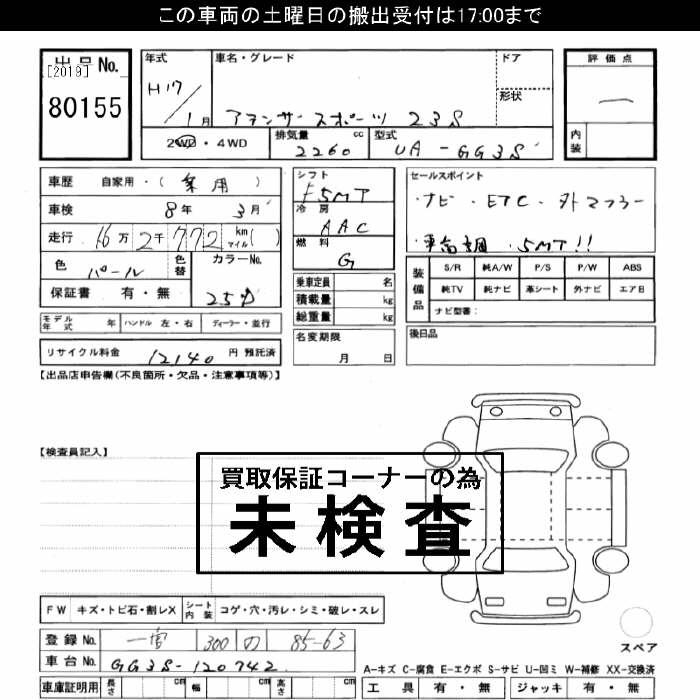 この車両の土曜日の搬出受付は17:00まで
出品No.
[2019]
80155
年式
H17/1月
車名・グレード
アテンザースポーツ 23S
ドア
形状
2WD・4WD
排気量 2260 cc
型式 UA-GG3S
評価点
―
内装
車歴 自家用・(業用)
車検 8年 3月
走行 16万2千772 km マイル( )
色 パール
色替
カラーNo. 25D
保証書 有・無
モデル年式 年 ハンドル 左・右 ディーラー・並行
リサイクル料金 12140 円 預託済
シフト F5MT
冷房 AAC
燃料 G
乗車定員 名
積載量 kg
総重量 kg
名変期限
月 日
セールスポイント
・ナビ・ETC・外マフラー
・車高調・5MT!!
装備品
S/R 純A/W P/S P/W ABS
純TV 純ナビ 革シート 外ナビ エアB
ナビ型番:
後日品
【出品店申告欄(不良箇所・欠品・注意事項等)】
【検査員記入】
買取保証コーナーの為
未検査
FW キズ・トビ石・割レX
シート内装 コゲ・穴・汚レ・シミ・破レ・スレ
登録No. 一宮 300 の 85-63
車台No. GG3S-120742
車庫証明用 長さ cm 幅 cm 高さ cm
スペア
A-キズ C-腐食 E-エクボ S-サビ U-凹ミ W-補修 XX-交換済
工具 有・無 ジャッキ 有・無